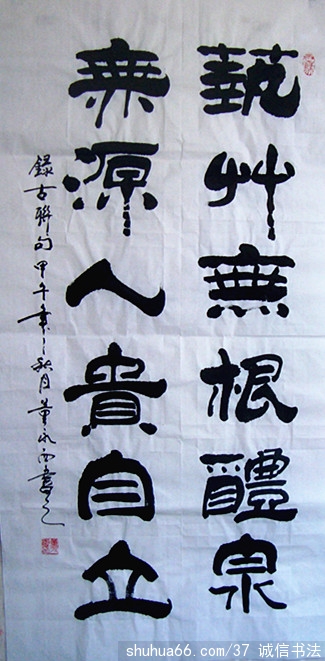 埶艸無根醴泉
無源人貴自立
録古聯句甲午年之秋月董永西書之
shuhua66.com/37 诚信书法